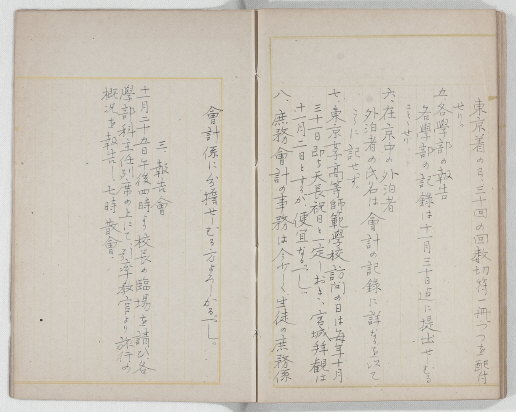 東京着の日三十回の回数切符一冊づつを配付
せり。
五、各學部の報告
各學部の記録は十一月三十日迄に提出せしむる
こととせり。
六、在京中の外泊者
外泊者の氏名は會計の記録に詳なるを以て
こゝに記せず。
七、東京女子高等師範學校訪問の日は毎年十月
三十一日即ち天長祝日と一定しおき、宮城拜觀は
十一月二日とするが便宜なるべし。
八、庶務會計の事務は今少しく生徒の庶務係
會計係に分擔せしむる方よろしかるべし。
三、報告會
十一月二十五日午後四時より校長の臨場を請ひ各
學部科主任列席の上にて引率教官より旅行の
概況を報告し七時散會